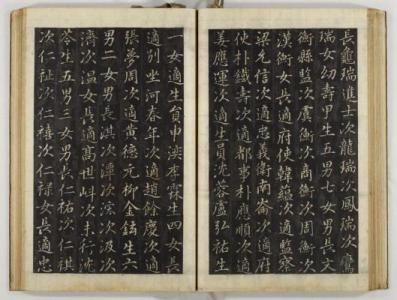 長龜瑞進士次龍瑞次鳳瑞次鷹
瑞女幼壽甲生五男七女男長文
衡縣監次虞衡次商衡次周衡次
漢衡女長適府使韓蘊次適監察
梁允信次適忠義衛南崙次適府
使朴鐵壽次適都事朴應順次適
姜應運次適生貟沈蓉盧弘祐生
一女適生貟申浹李霖生四女長
適別坐河春年次適趙餘慶次適
張夢周次適黃德元柳金生六
男二女男長淇次渾次浣次汲次
濟次温女長適高世次未行沈
苓生五男三女男長仁祐次仁祺
次仁祉次仁禧次仁祿女長適忠